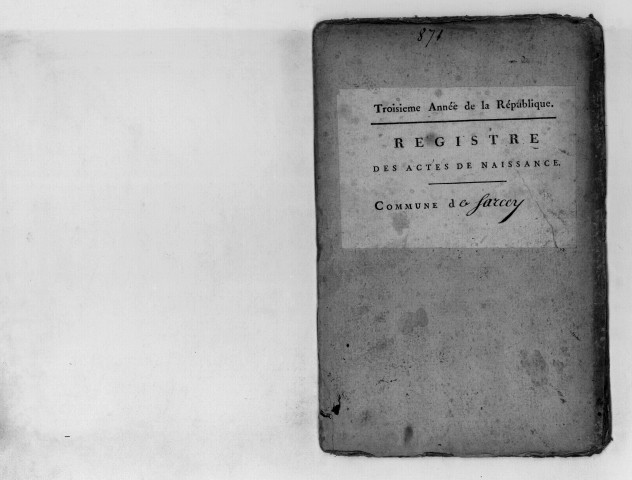 871
Troisieme Année de la République.
REGISTRE
DES ACTES DE NAISSANCE.
COMMUNE de Sarcey